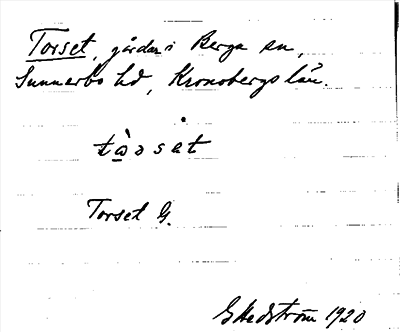 Torset, gårdar i Berga sn,
Sunnerbo hd, Kronobergs län.
Torset G.
G Hedström 1920